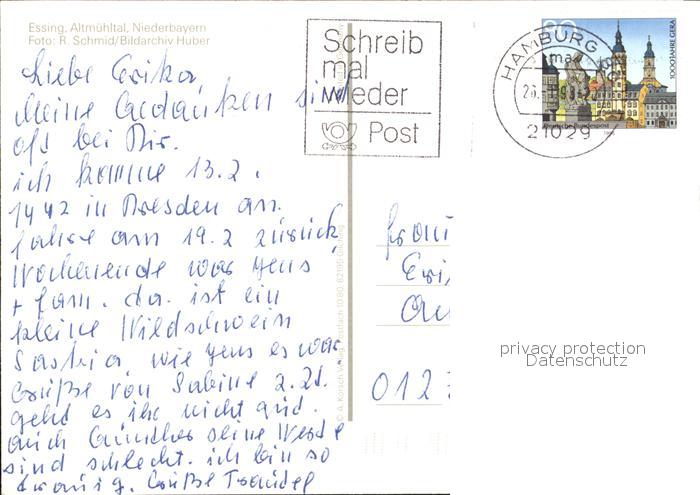 Essing, Altmühltal, Niederbayern
Foto: R. Schmid/Bildarchiv Huber
Liebe Erika
Meine Gedanken sind
oft bei Dir.
ich komme 13.2.
1442 in Dresden an.
fahre am 19.2 zürück
Wochenende war Jens
+ fam. da. ist ein
kleine Wildschwein
Saskia, wie Jens es war
Grüße von Sabine z.Zt.
geht es ihr nicht gut.
auch Günther seine Werte
sind schlecht. ich bin so
traurig. Grüße Traudel
Schreib
mal
wieder
Post
HAMBURG
21029
1000 JAHRE GERA
Deutsche Bundespost
Frau
Eri
012
privacy protection
Datenschutz